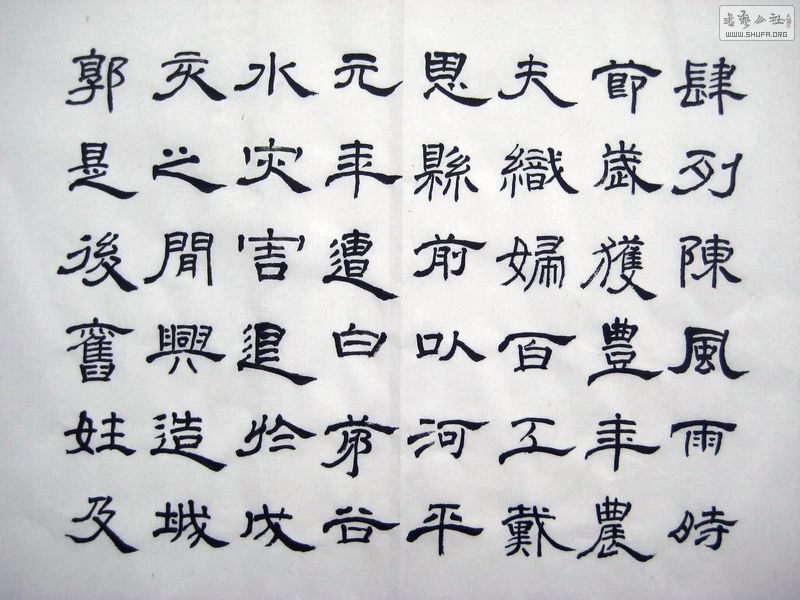 肆列陳風雨時
節歲獲豐年農
夫織婦百工戴
恩縣前以河平
元年遭白茅谷
水灾害退於戌
亥之閒興造城
郭是後舊姓及
書藝公社
WWW.SHUFA.ORG